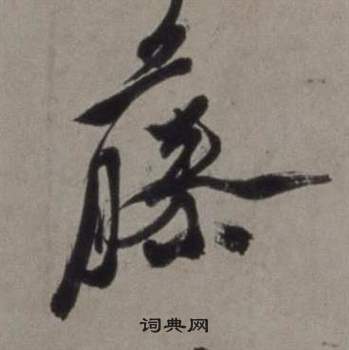 藤
词典网